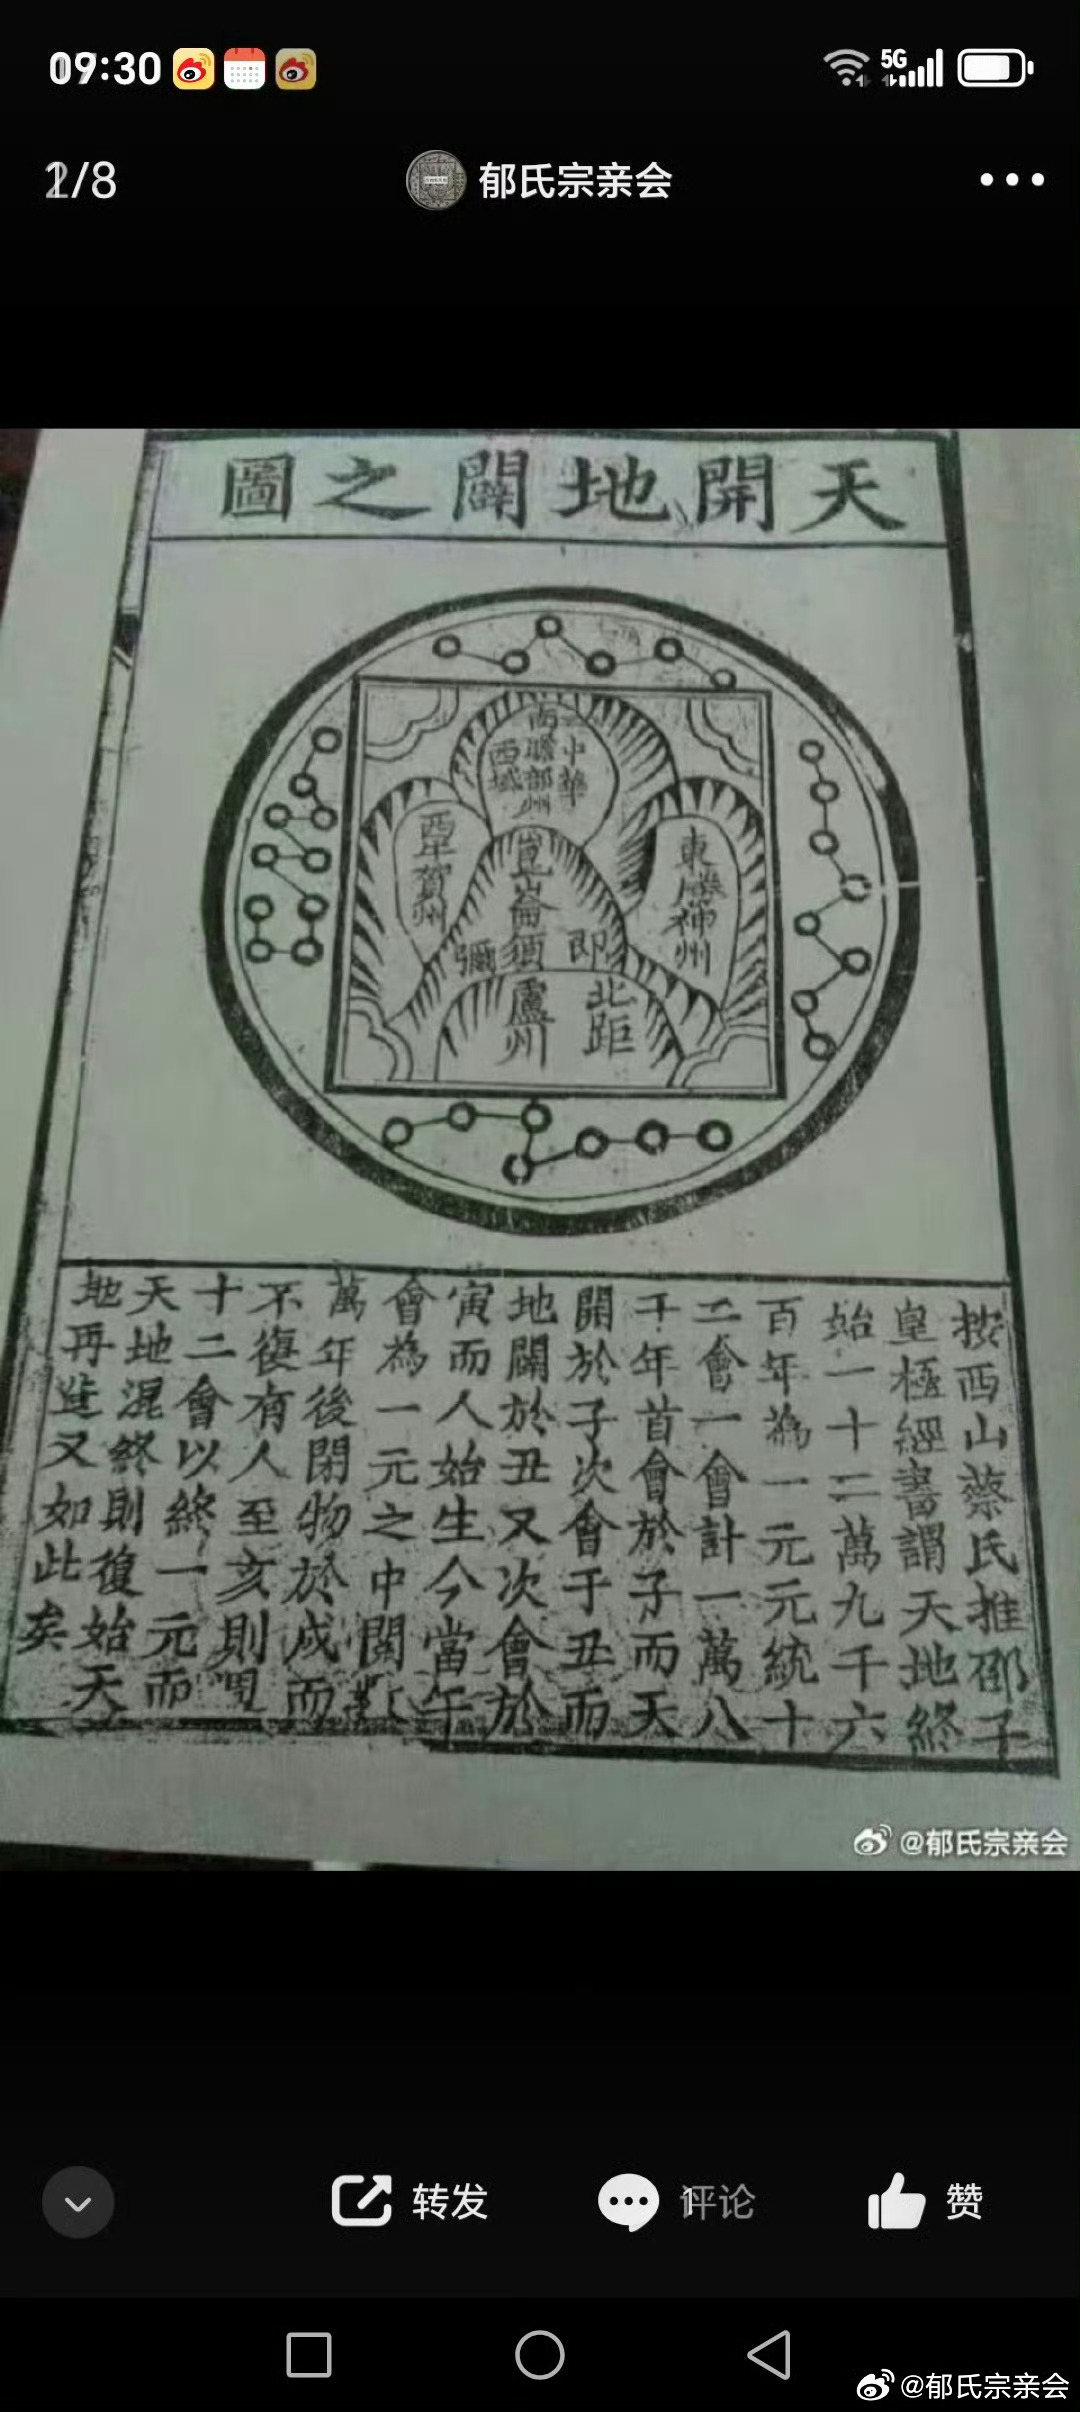 09:30
5G
/8
郁氏宗亲会
天開地闢之圖
中華
南瞻部州
西域
東勝神州
西牛賀州
崑崙
即須彌
北距盧州
按西山蔡氏推邵子
皇極經書謂天地終
始一十二萬九千六
百年為一元元統十
二會一會計一萬八
千年首會於子而天
開於子次會于丑而
地闢於丑又次會於
寅而人始生今當午
會為一元之中閱
萬年後閉物於戌而
不復有人至亥則
十二會以終一元而
天地混終則復始天
地再造又如此矣
@郁氏宗亲会
转发
评论
赞
@郁氏宗亲会